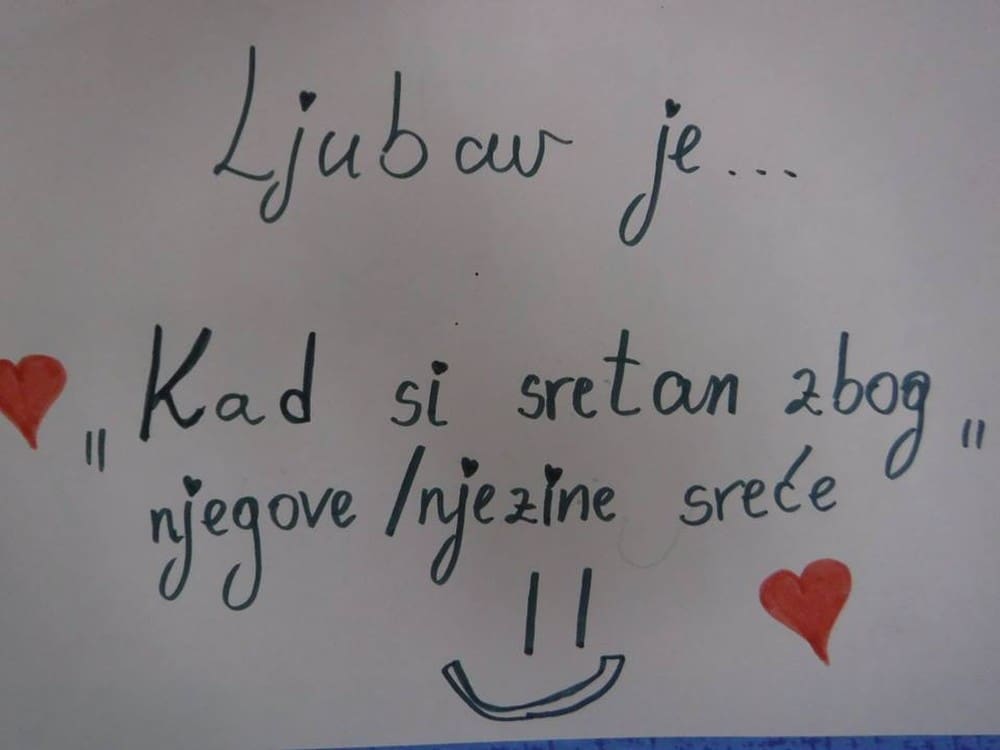 Ljubav je...
"Kad si sretan zbog"
njegove/njezine sreće